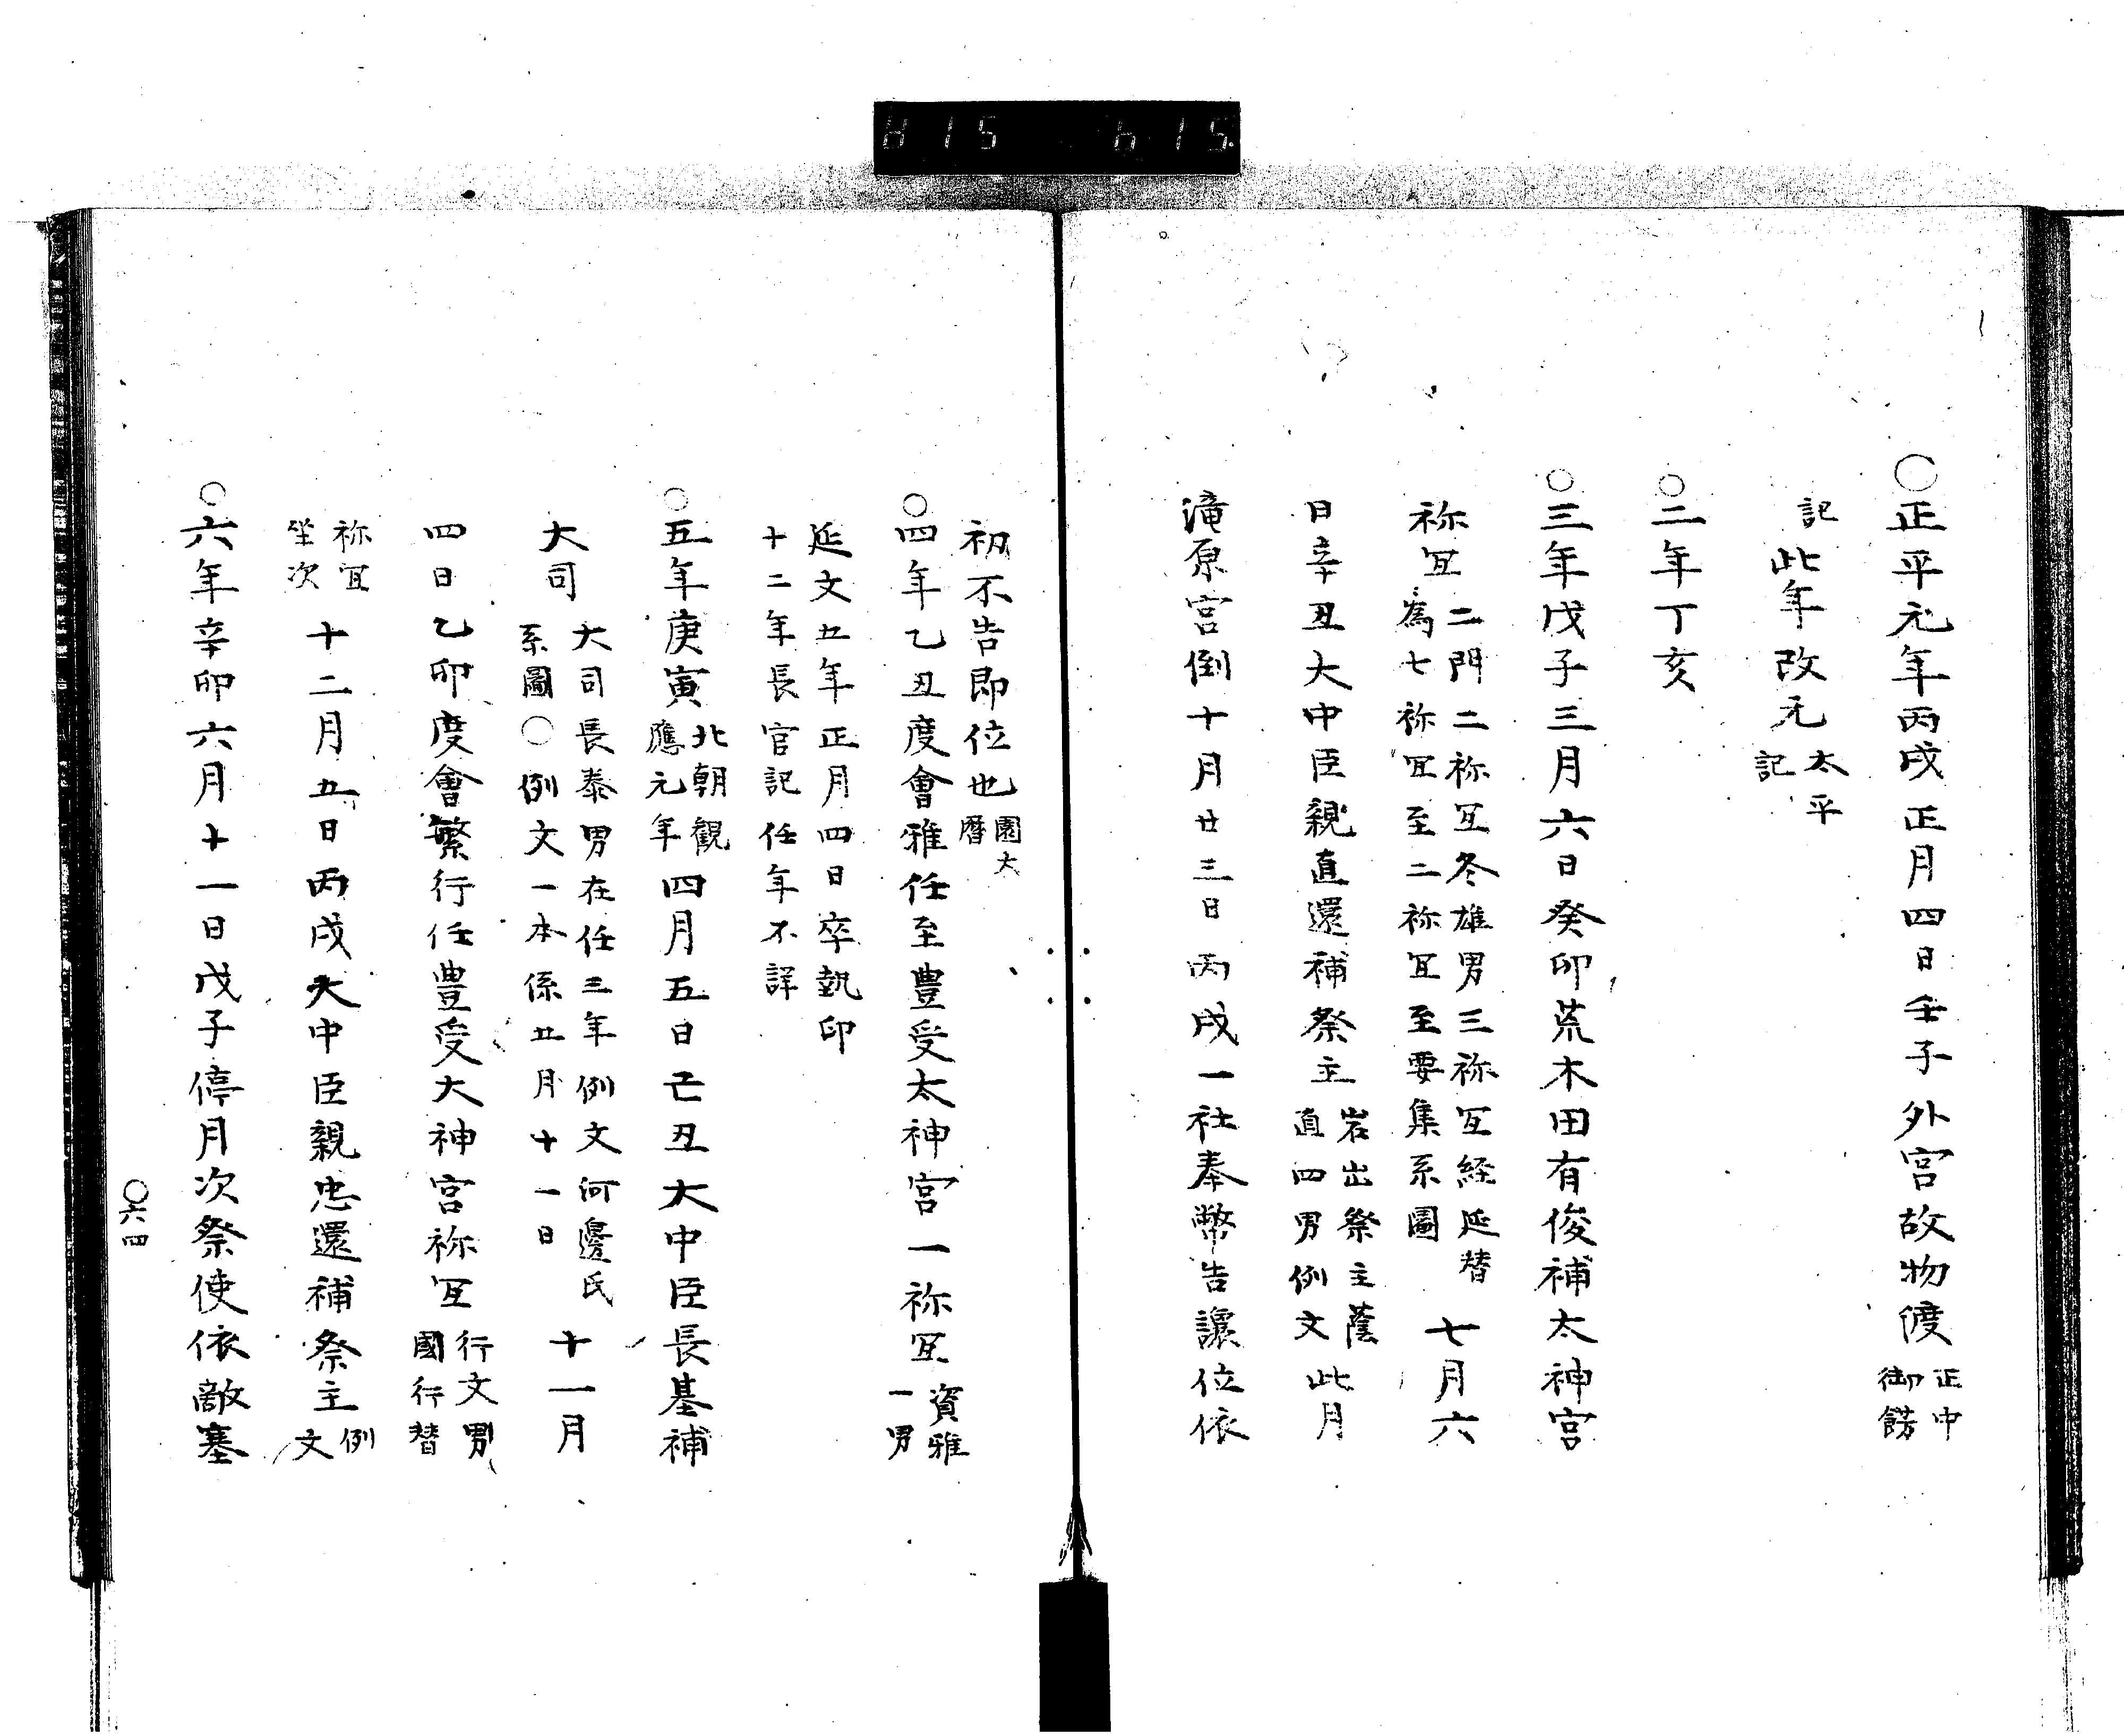 815 615
〇正平元年丙戌正月四日壬子外宮故物渡正中御餝
記此年改元太平記
〇二年丁亥
〇三年戊子三月六日癸卯荒木田有俊補太神宮
祢冝二門二祢冝冬雄男三祢冝経延替為七祢冝至二祢冝至要集系圖七月六
日辛丑大中臣親直還補祭主岩出祭主蔭直四男例文此月
滝原宮倒十月廿三日丙戌一社奉幣告譲位依
初不告即位也園大暦
〇四年乙丑度會雅任至豊受太神宮一祢冝資雅一男
延文五年正月四日卒執印
十二年長官記任年不詳
〇五年庚寅北朝觀應元年四月五日己丑大中臣長基補
大司大司長泰男在任三年例文河邊氏系圖〇例文一本係五月十一日十一月
四日乙卯度會繁行任豊受大神宮祢冝行文男國行替
祢冝坐次十二月五日丙戌大中臣親忠還補祭主例文
〇六年辛卯六月十一日戊子停月次祭使依敵塞
〇六四